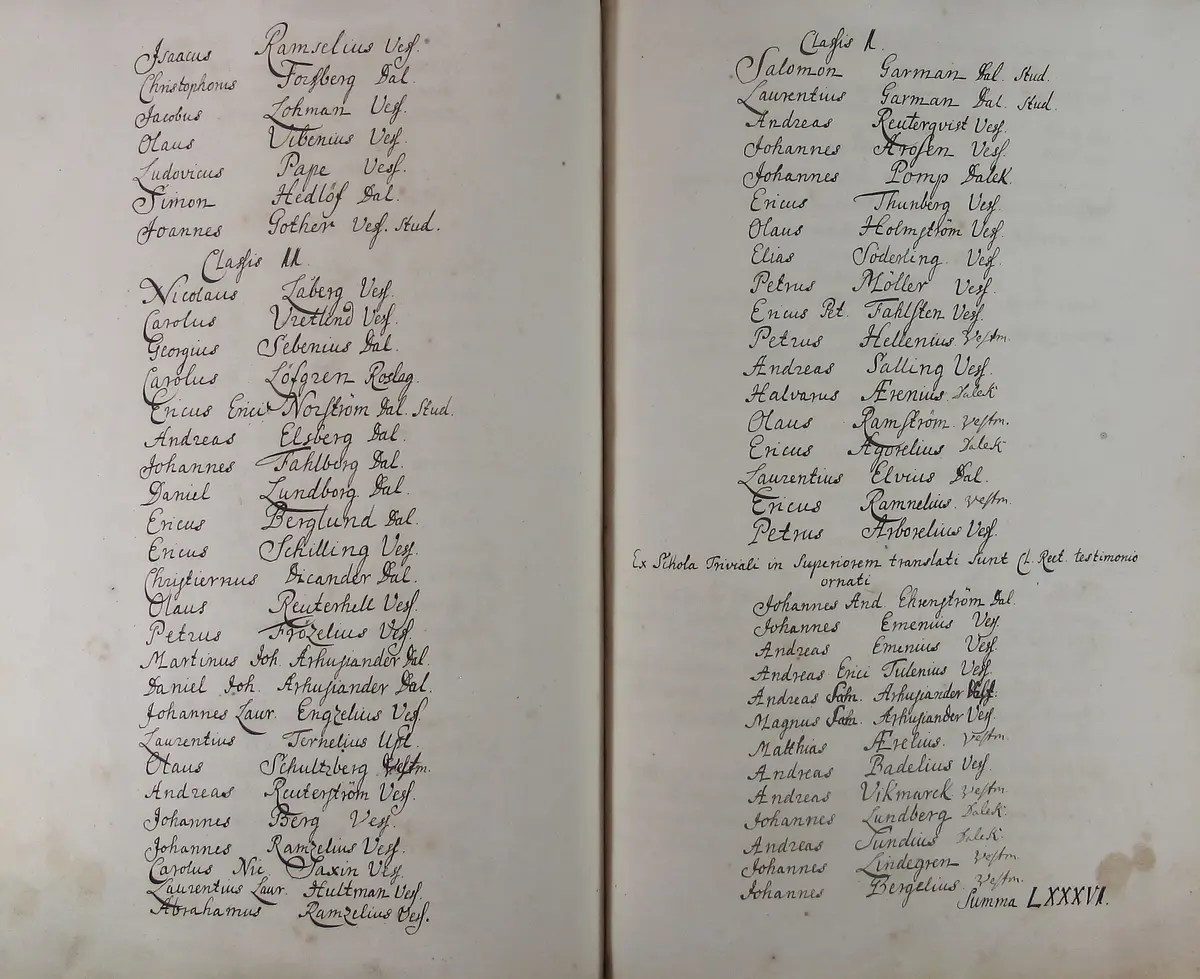 Isaacus Ramselius Vesf.
Christophorus Forsberg Dal.
Jacobus Lohman Vesf.
Olaus Vibenius Vesf.
Ludovicus Pape Vesf.
Simon Hedlöf Dal.
Joannes Gother Vesf. Stud.
Classis II.
Nicolaus Låberg Vesf.
Carolus Vretlind Vesf.
Georgius Sebenius Dal.
Carolus Löfgren Roslag.
Ericus Erici Norström Dal. Stud.
Andreas Elsberg Dal.
Johannes Fahlberg Dal.
Daniel Lundborg Dal.
Ericus Berglund Dal.
Ericus Schilling Vesf.
Christiernus Dicander Dal.
Olaus Reuterhell Vesf.
Petrus Frözelius Vesf.
Martinus Joh. Arhusiander Dal.
Daniel Joh. Arhusiander Dal.
Johannes Laur. Engzelius Vesf.
Laurentius Ternelius Upl.
Olaus Schultzberg Vestm.
Andreas Reuterström Vesf.
Johannes Berg Vesf.
Johannes Ramzelius Vesf.
Carolus Nic. Saxin Vesf.
Laurentius Laur. Hultman Vesf.
Abrahamus Ramzelius Vesf.
Classis I.
Salomon Garman Dal. Stud.
Laurentius Garman Dal. Stud.
Andreas Reuterqvist Vesf.
Johannes Arosen Vesf.
Johannes Pomp Dalek.
Ericus Thunberg Vesf.
Olaus Holmström Vesf.
Elias Söderling Vesf.
Petrus Möller Vesf.
Ericus Pet. Fahlsten Vesf.
Petrus Hellenius Vestm.
Andreas Salling Vesf.
Halvarus Ærenius Dalek
Olaus Ramström Vestm.
Ericus Agorelius Dalek
Laurentius Elvius Dal.
Ericus Ramnelius Vestm.
Petrus Arborelius Vesf.
Ex Schola Triviali in Superiorem translati sunt Cl. Rect. testimonio
ornati
Johannes And. Ehrenström Dal.
Johannes Emenius Vesf.
Andreas Emenius Vesf.
Andreas Erici Tulenius Vesf.
Andreas Arhusiander Vesf.
Magnus Arhusiander Vesf.
Matthias Ærelius Vestm.
Andreas Badelius Vesf.
Andreas Vikmarck Vestm.
Johannes Lundberg Dalek.
Andreas Sundius Dalek.
Johannes Lindegren Vestm.
Johannes Bergelius Vestm.
Summa LXXXVI.